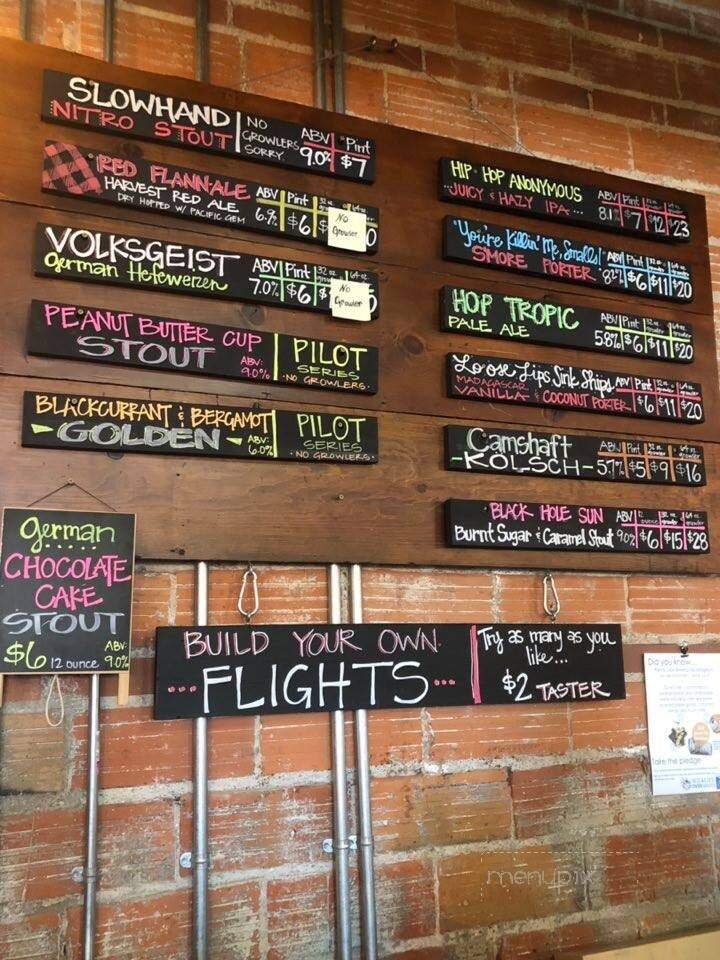 SLOWHAND NO ABV Pint
NITRO STOUT GROWLERS 9.0% $7
SORRY
RED FLANN-ALE ABV Pint
HARVEST RED ALE 6.9% $6
DRY HOPPED W/ PACIFIC GEM
No
Growler
VOLKSGEIST ABV Pint 32 oz. 64 oz.
German Hefeweizen 7.0% $6
No
Growler
PEANUT BUTTER CUP
STOUT ABV:
9.0%
PILOT
SERIES
-NO GROWLERS-
BLACKCURRANT & BERGAMOT
-GOLDEN- ABV:
6.0%
PILOT
SERIES
-NO GROWLERS-
HIP HOP ANONYMOUS ABV Pint
JUICY & HAZY IPA... 8.1% $7 $12 $23
"You're Killin' Me, Smalls! ABV Pint 32 oz. 64 oz.
SMORE PORTER $6 $11 $20
HOP TROPIC ABV Pint 32 oz. 64 oz.
PALE ALE 5.8% $6 $11 $20
Loose Lips Sink Ships ABV Pint
MADAGASCAR
VANILLA & COCONUT PORTER $6 $11 $20
Camshaft ABV Pint 32 oz. 64 oz.
-KÖLSCH- 5.7% $5 $9 $16
BLACK HOLE SUN ABV 12 ounce 32 oz. growler 64 oz. growler
Burnt Sugar & Caramel Stout 9.0% $6 $15 $28
German
CHOCOLATE
CAKE
STOUT
$6 12 ounce ABV:
9.0%
BUILD YOUR OWN
...FLIGHTS...
Try as many as you
like...
$2 TASTER
Did you know...
Take the pledge
menupix